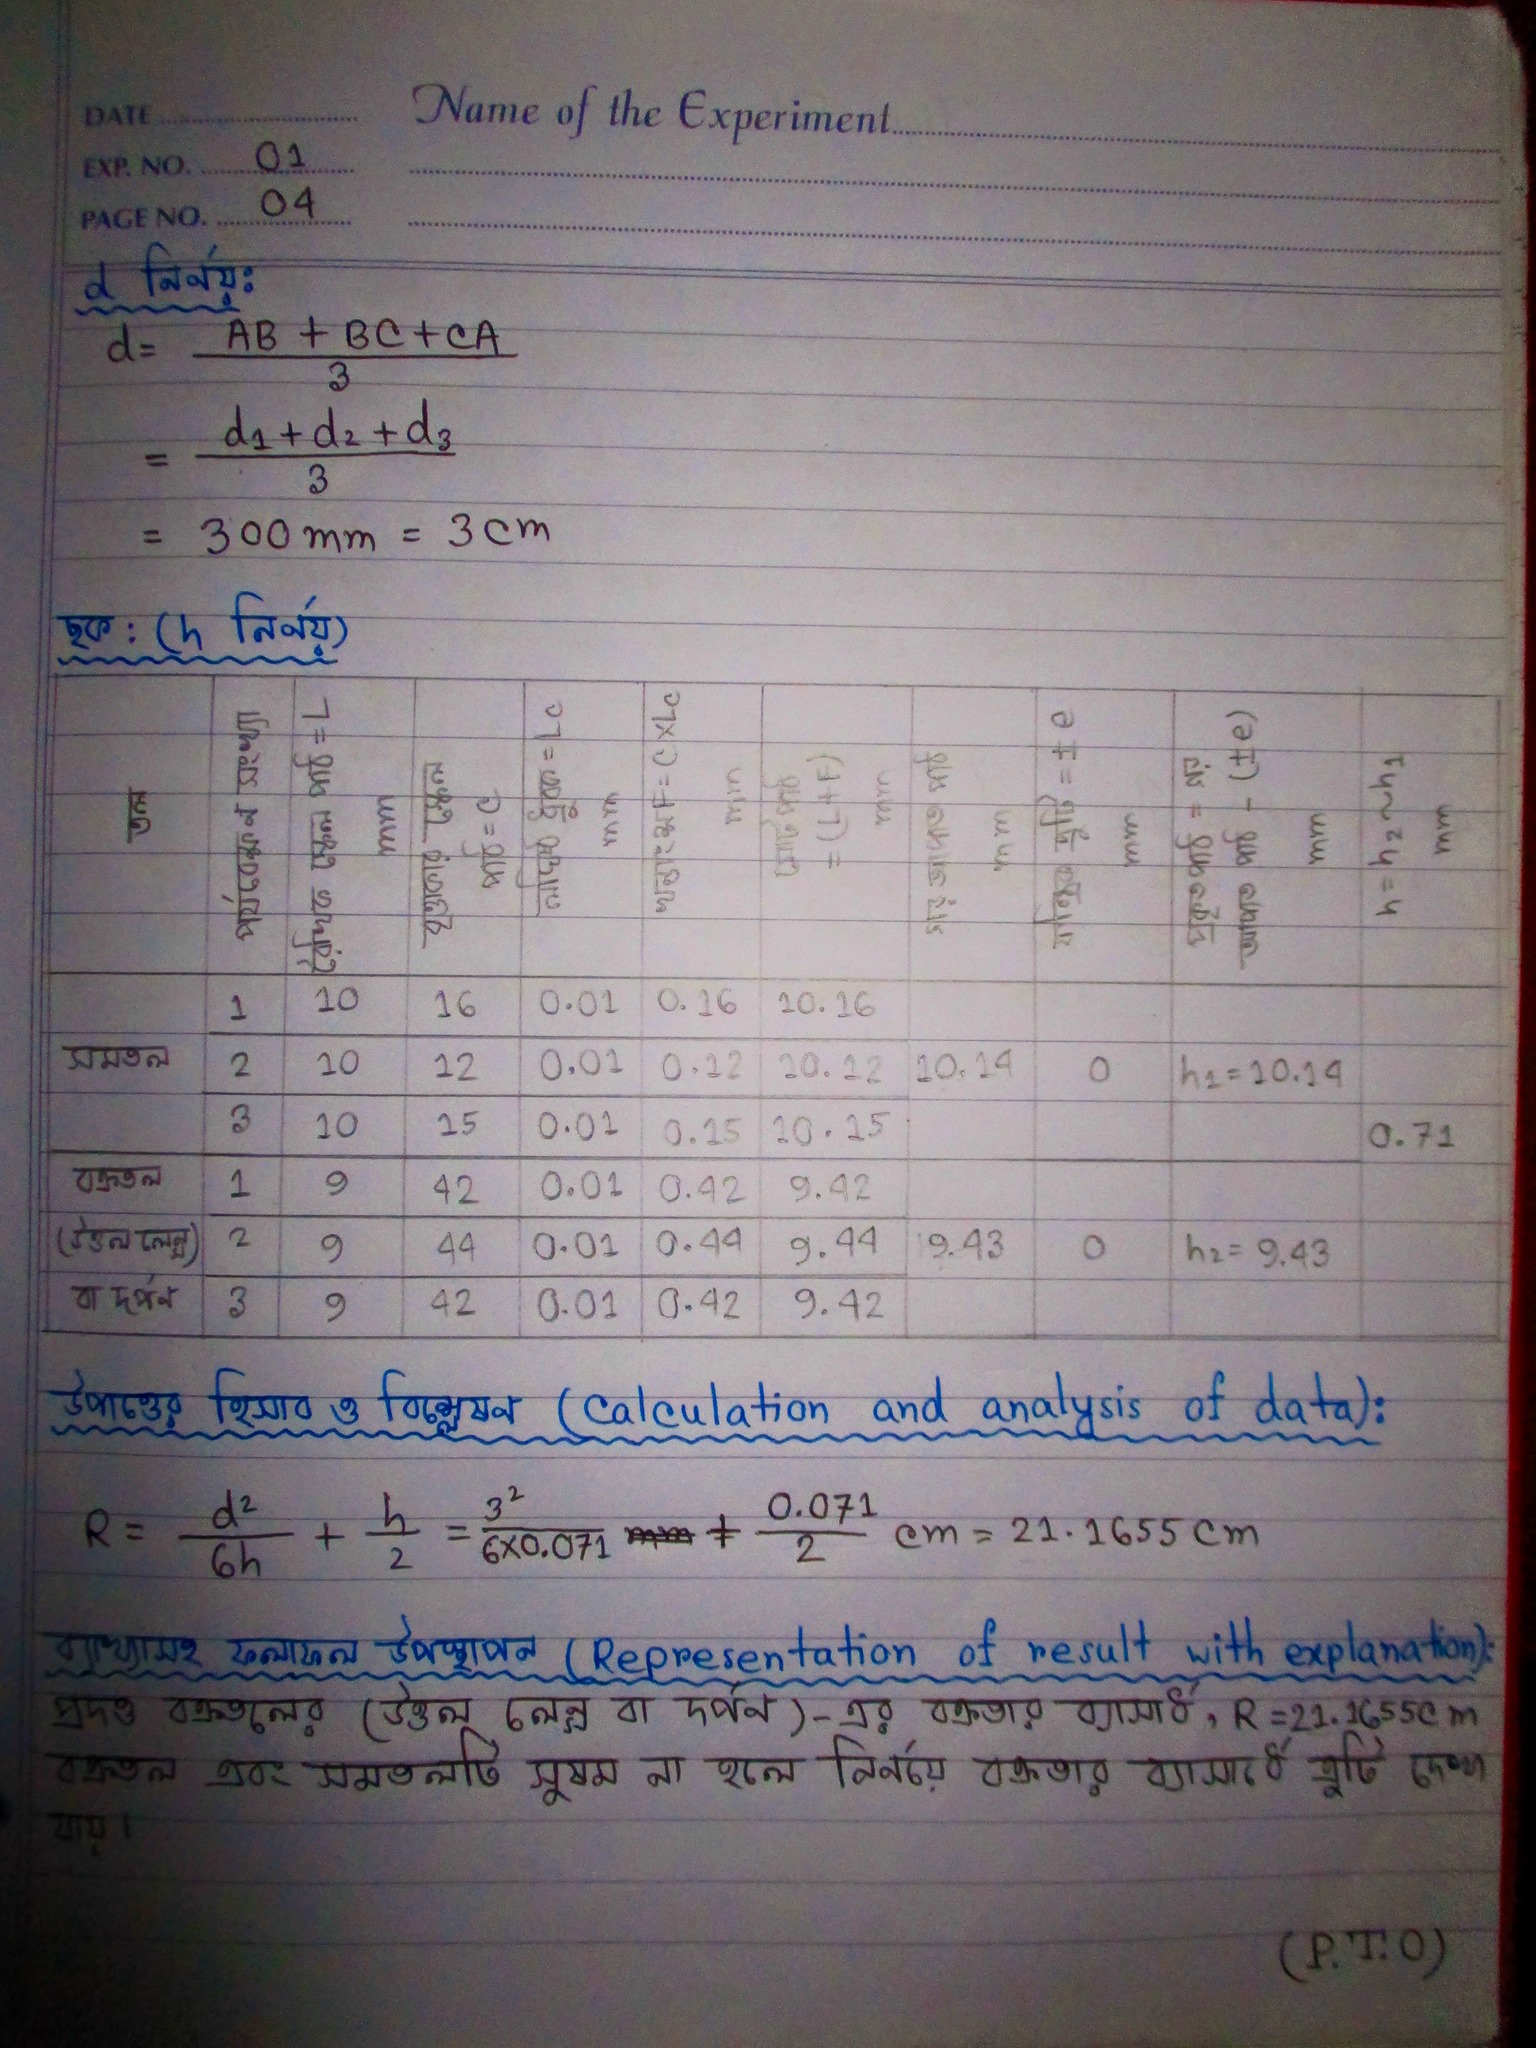 DATE
Name of the Experiment
EXP. NO. 01
PAGE NO. 04
d নির্ণয়ঃ
d = AB + BC + CA / 3
= d1 + d2 + d3 / 3
= 300 mm = 3 cm
ছক : (h নির্ণয়)
তল
পর্যবেক্ষণ সংখ্যা
রৈখিক স্কেল পাঠ = L mm
বৃত্তাকার স্কেল পাঠ = C
লঘিষ্ঠ ধ্রুবক = Lc mm
ভগ্নাংশ F = C×Lc mm
মোট পাঠ = (L+F) mm
গড় আপাত পাঠ mm
যান্ত্রিক ত্রুটি = ± e mm
প্রকৃত পাঠ = গড় আপাত পাঠ - (±e) mm
h = h2 ~ h1 mm
1 10 16 0.01 0.16 10.16
সমতল 2 10 12 0.01 0.12 10.12 10.14 0 h1 = 10.14
3 10 15 0.01 0.15 10.15 0.71
বক্রতল 1 9 42 0.01 0.42 9.42
(উত্তল লেন্স) 2 9 44 0.01 0.44 9.44 9.43 0 h2 = 9.43
বা দর্পন 3 9 42 0.01 0.42 9.42
উপাত্তের হিসাব ও বিশ্লেষন (Calculation and analysis of data):
R = d² / 6h + h / 2 = 3² / 6×0.071 + 0.071 / 2 cm = 21.1655 cm
ব্যাখ্যাসহ ফলাফল উপস্থাপন (Representation of result with explanation):
প্রদত্ত বক্রতলের (উত্তল লেন্স বা দর্পন) - এর বক্রতার ব্যাসার্ধ, R = 21.1655cm
বক্রতল এবং সমতলটি সুষম না হলে নির্ণয়ে বক্রতার ব্যাসার্ধে ত্রুটি দেখা
যায়।
(P.T.O)